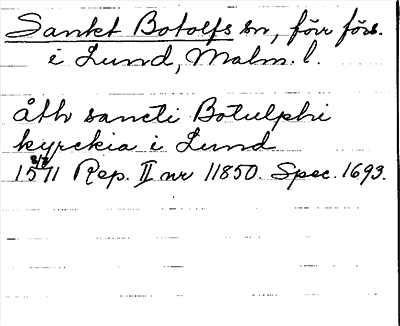 Sankt Botolfs sn, förr förs.
i Lund, Malm. l.
åth sancti Botulphi
kyrckia i Lund
15 8/3 11 Rep. II nr 11850. Spec. 1693.